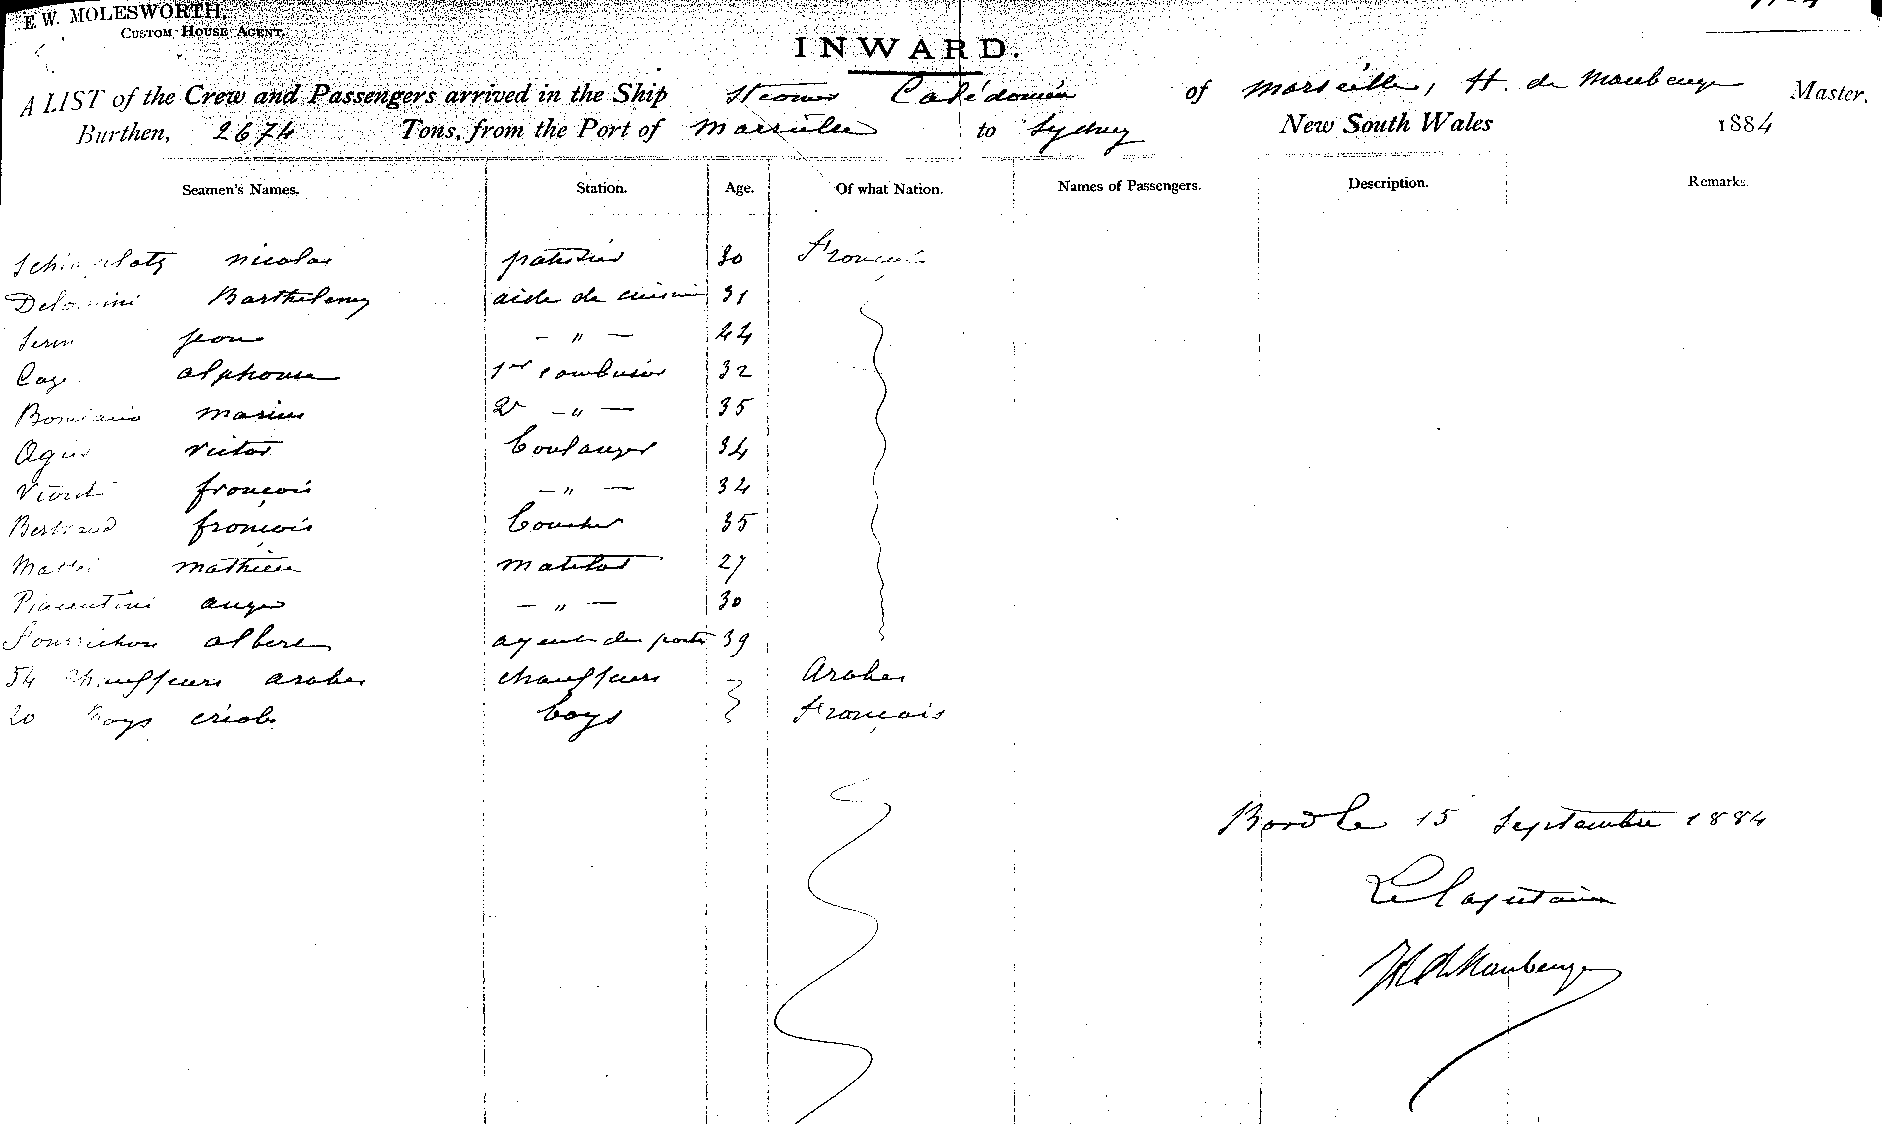 E. W. MOLESWORTH,
CUSTOM HOUSE AGENT.
INWARD.
A LIST of the Crew and Passengers arrived in the Ship Steamer Calédonien of Marseille, H. de Maubeuge Master,
Burthen, 2674 Tons, from the Port of Marseille to Sydney New South Wales 1884
Seamen's Names. Station. Age. Of what Nation. Names of Passengers. Description. Remarks.
nicolas patissier 30 Français
Barthelemy aide de cuisine 31
jean — " — 44
alphonse 1er cambusier 32
marius 2e — " — 35
victor Boulanger 34
françois — " — 34
Bertrand françois Boucher 35
Mattei mathieu matelot 27
Piacentini ange — " — 30
albert agent des postes 39
54 chauffeurs arabes chauffeurs Arabes
20 Boys créols boys Français
Bord le 15 Septembre 1884
Le Capitaine
H de Maubeuge